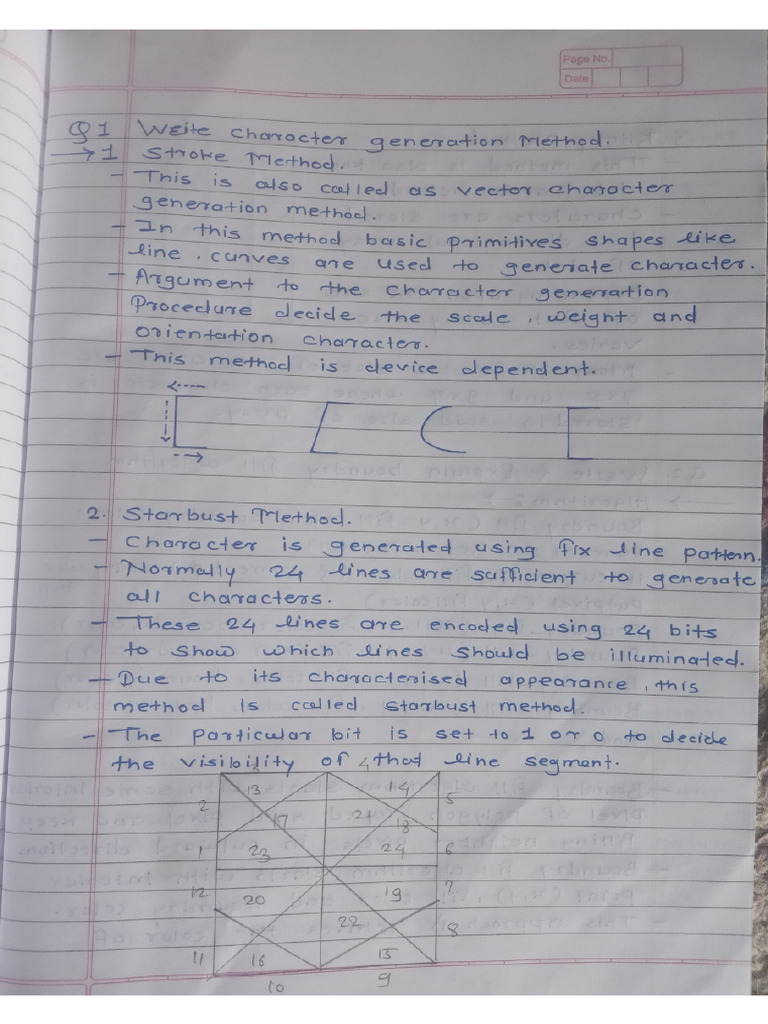 Page No.
Date
Q1 Write character generation Method.
→ 1 Stroke Method.
- This is also called as vector character
generation method.
- In this method basic primitives shapes like
line, curves are used to generate character.
- Argument to the character generation
Procedure decide the scale, weight and
orientation character.
- This method is device dependent.
2. Starbust Method.
- Character is generated using fix line pattern.
- Normally 24 lines are sufficient to generate
all characters.
- These 24 lines are encoded using 24 bits
to show which lines should be illuminated.
- Due to its characterised appearance, this
method is called starbust method.
- The particular bit is set to 1 or 0 to decide
the visibility of that line segment.
3 4
2 13 14 5
17 21 18
1 23 24 6
12 20 19 7
22 8
11 16 15
10 9